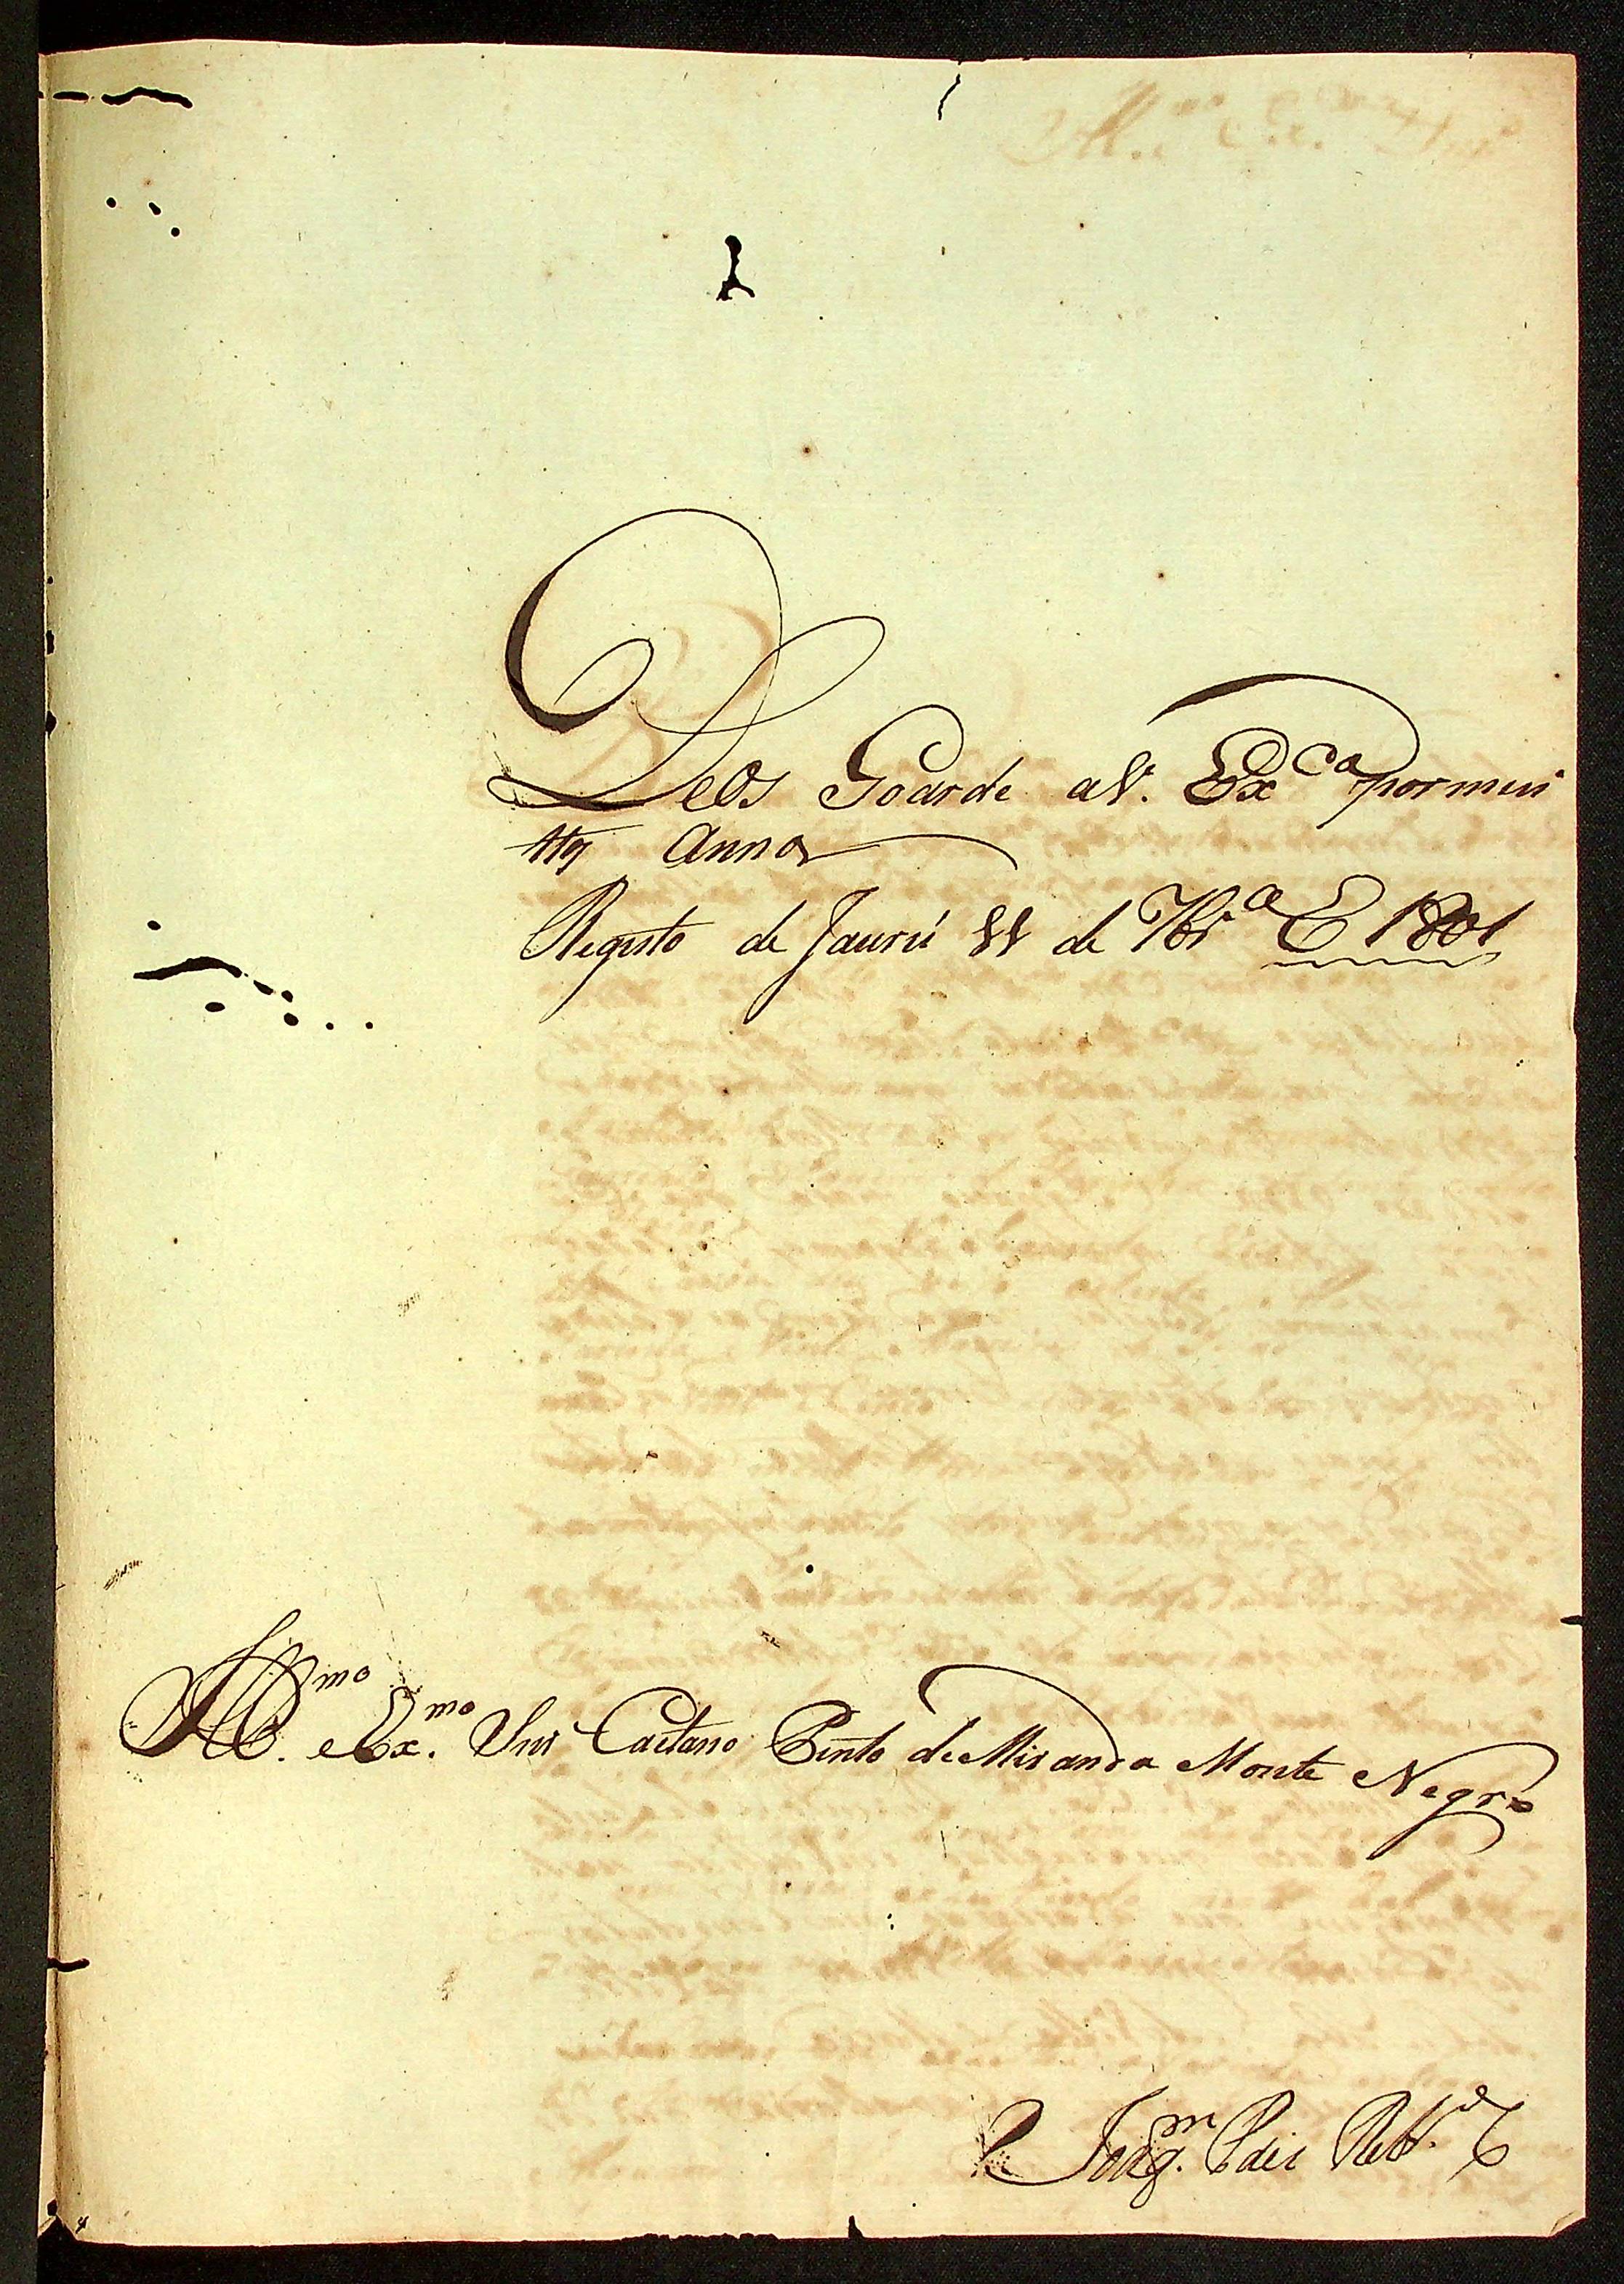 Deos Goarde aV. Exca por mui
ttos Annos
Registo de Jaurú 11 de 7bro E 1801
Illmo. e Exmo. Snr Caetano Pinto de Miranda Monte Negro
Joaqm.